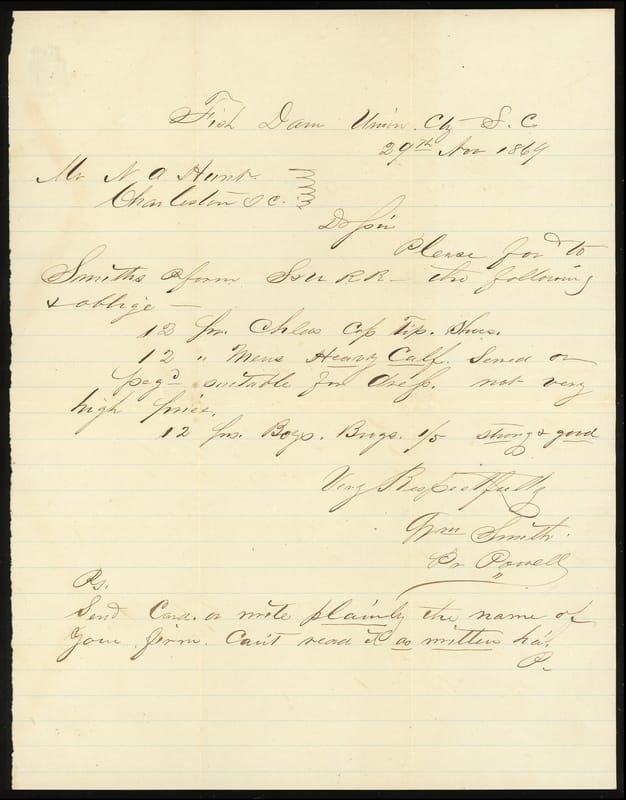 Fish Dam Union Cty S. C
29th Nov 1869
Mr N A Hunt
Charleston S C.
D Sir
Please ford to
Smiths S & U RR - the following
& oblige -
12 prs. Chlds Cop Tip. Shoes.
12 " Mens Heavy Calf. Sewed or
pegd suitable for dress. not very
high price.
12 prs. Boys. Brogs. 1/5 strong & good
Very Respectfully
Wm Smith
Pr Powell
Ps.
Send Card. or write plainly the name of
your firm. Can't read it as written ha'.
P.